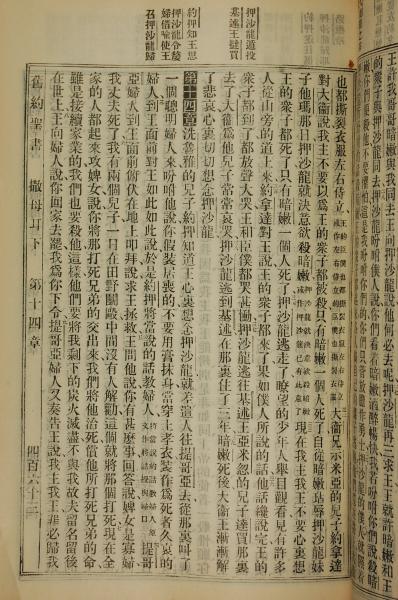 王許我哥哥暗嫩與我同去王向押沙龍說他何必去呢押沙龍再三求王王就許暗嫩和王
的衆子與押沙龍同去押沙龍吩咐僕人說你們看着暗嫩飲酒暢快我若吩咐你們說殺暗
押沙龍遁投
基述王達買
約押知王思
押沙龍令慧
婦借喻使王
召押沙龍歸
也都撕裂衣服左右侍立 大衛兄示米亞的兒子約拿達
對大衛說我主不要以爲王的衆子都被殺只有暗嫩一個人死了自從暗嫩玷辱押沙龍妹
子他瑪那日押沙龍就決意欲殺暗嫩 現在我主我王不要心裏想
王的衆子都死了只有暗嫩一個人死了押沙龍逃走了瞭望的少年人舉目觀看見有許多
人從山旁的道上來約拿達對王說王的衆子都來了果如僕人所說的話他話纔說完王的
衆子都到了都放聲大哭王和臣僕都哭甚慟押沙龍逃往基述王亞米忽的兒子達買那裏
去了大衛爲他兒子常常哀哭押沙龍逃到基述在那裏住了三年暗嫩死後大衛王漸漸解
了悲哀心裏切切想念押沙龍
第十四章 洗魯雅的兒子約押知道王心裏想念押沙龍就差遣人往提哥亞去從那裏叫了
一個聰明婦人來吩咐他說你假裝居喪的不要用膏抹身當穿上孝衣裝作爲死者久哀的
婦人到王面前對王如此如此說於是約押將當說的話教婦人 提哥
亞婦人到王面前俯伏在地上叩拜說求王拯救王問他說你有甚麽事回答說婢女是寡婦
我丈夫死了我有兩個兒子一日在田野鬬毆中間沒有人解勸這個就將那個打死現在全
家的人都起來攻婢女說你將那打死兄弟的交出來我們將他治死償他所打死兄弟的命
雖是接續家業的我們也要殺他這樣他們要將我剩下的炭火滅盡不與我故夫留名留後
在世上王向婦人說你回家去罷我爲你下令提哥亞婦人又奏告王說我主我王罪必歸我
舊約聖書 撒母耳下 第十四章 四百六十二